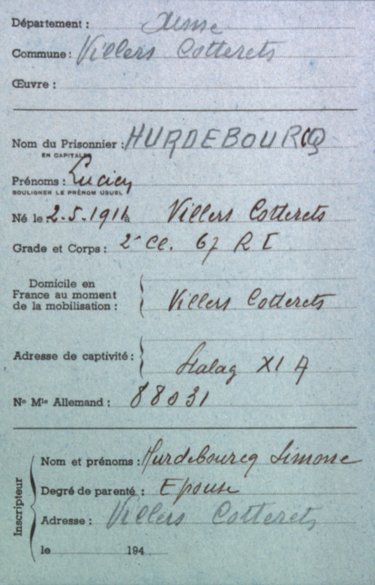 Département : Aisne
Commune : Villers Cotterets
Œuvre :
Nom du Prisonnier : HURDEBOURCQ
EN CAPITALE
Prénoms : Lucien
SOULIGNER LE PRÉNOM USUEL
Né le 2.5.1914 Villers Cotterets
Grade et Corps : 2e Cl. 67 R I
Domicile en
France au moment
de la mobilisation : Villers Cotterets
Adresse de captivité : Stalag XI A
No Mle Allemand : 88031
Inscripteur
Nom et prénoms : Hurdebourcq Simone
Degré de parenté : Epouse
Adresse : Villers Cotterets
le 194